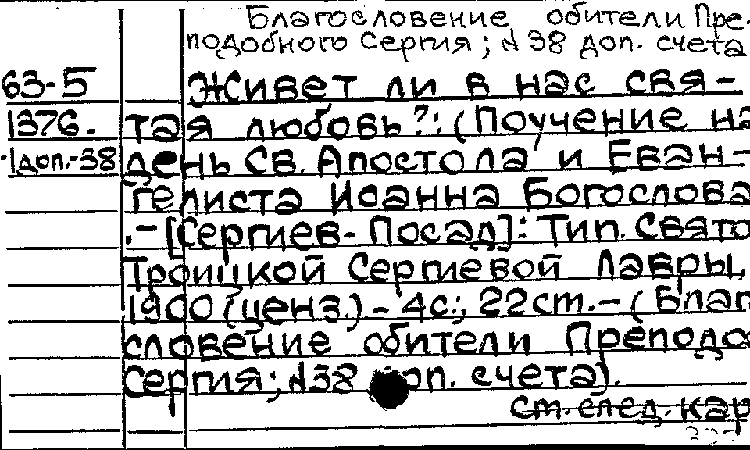 Благословение обители Пре-
подобного Сергия; № 38 доп. счета
63-5 Живет ли в нас свя-
1376. тая любовь?: (Поучение на
1доп.-38 день Св. Апостола и Еван-
гелиста Иоанна Богослова
.- [Сергиев-Посад]: Тип. Свято
Троицкой Сергиевой Лавры,
1900 (ценз.) - 4с.; 22см. - (Благо
словение обители Преподо
Сергия; №38 доп. счета).
См. след. кар